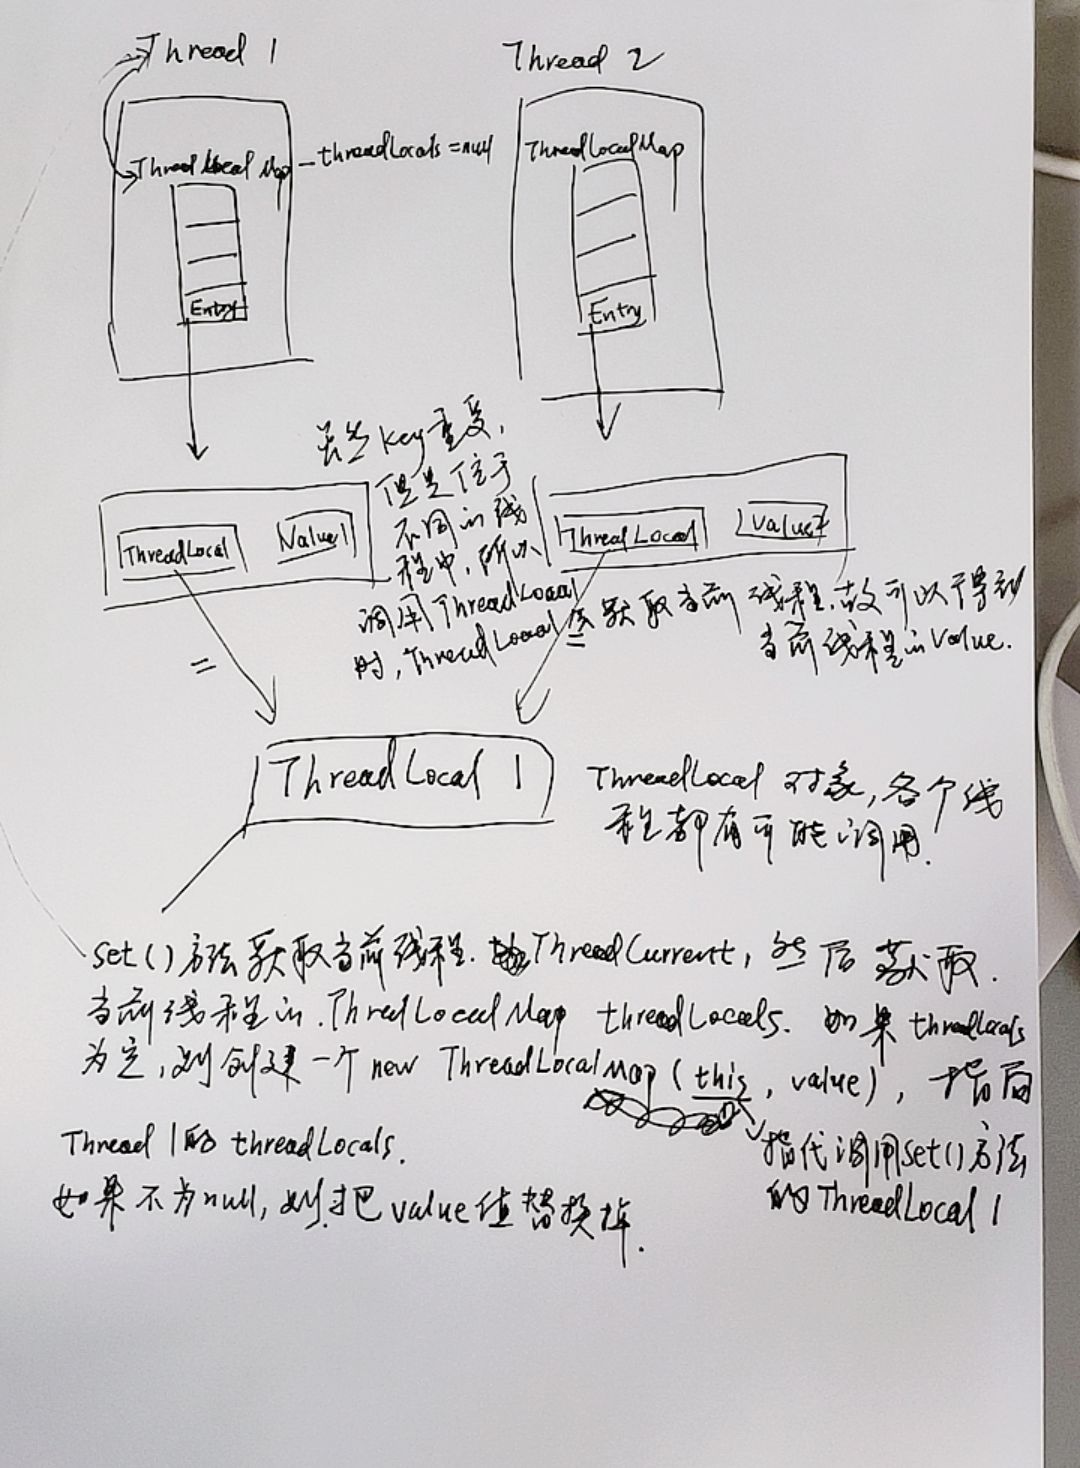 Thread 1
Thread 2
ThreadLocal Map
threadLocals = null
ThreadLocalMap
Entry
Entry
虽然key重复,
但是位于
不同的线
程中,所以
调用ThreadLocal
时,ThreadLocal会获取当前线程.故可以得到
当前线程的Value.
ThreadLocal
Value1
ThreadLocal
Value2
=
=
ThreadLocal 1
ThreadLocal 对象,各个线
程都有可能调用.
set()方法获取当前线程. ThreadCurrent,然后获取.
当前线程的.ThredLocalMap threadLocals. 如果threadLocals
为空,则创建一个new ThreadLocalMap(this, value), 指向
Thread 1的 threadLocals.
指代调用set()方法
的ThreadLocal 1
如果不为null,则把value值替换掉.